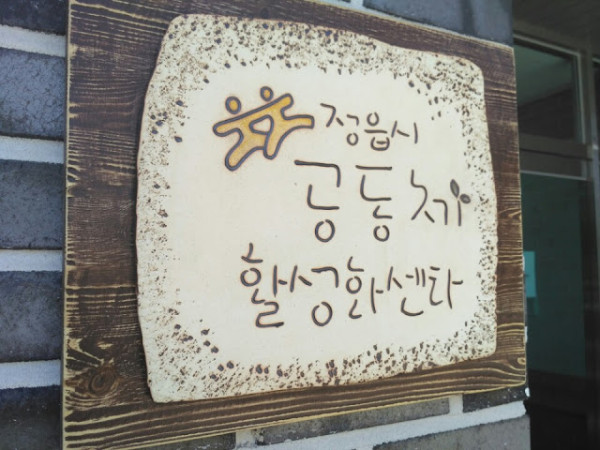 정읍시
공동체
활성화센타